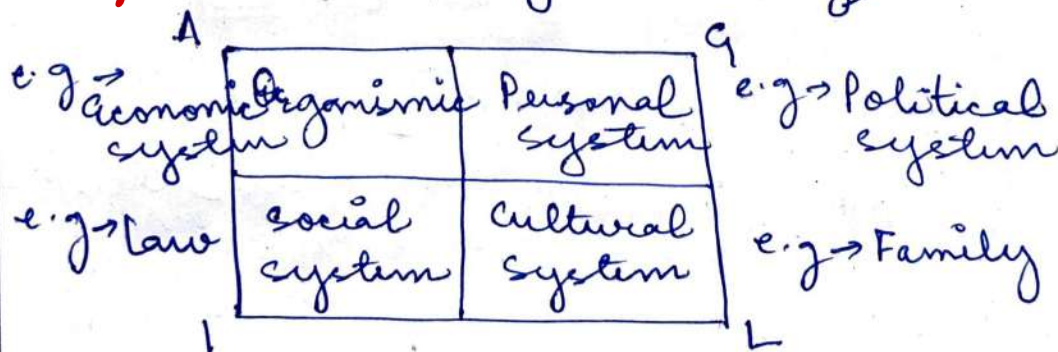 A G
e.g → economic system Organismic Personal system e.g → Political system
e.g → Law social system Cultural system e.g → Family
I L